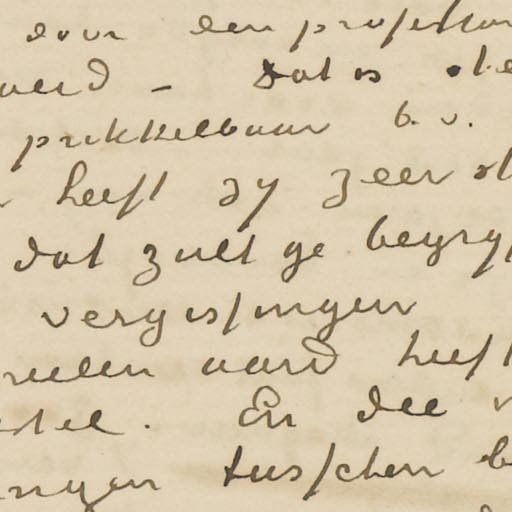 door een professor
werd – dat is ste
prikkelbaar b.v.
heeft zy zeer st
dat zult ge begryp
vergissingen
reelen aard heeft
stel. En die v
ingen tusschen b